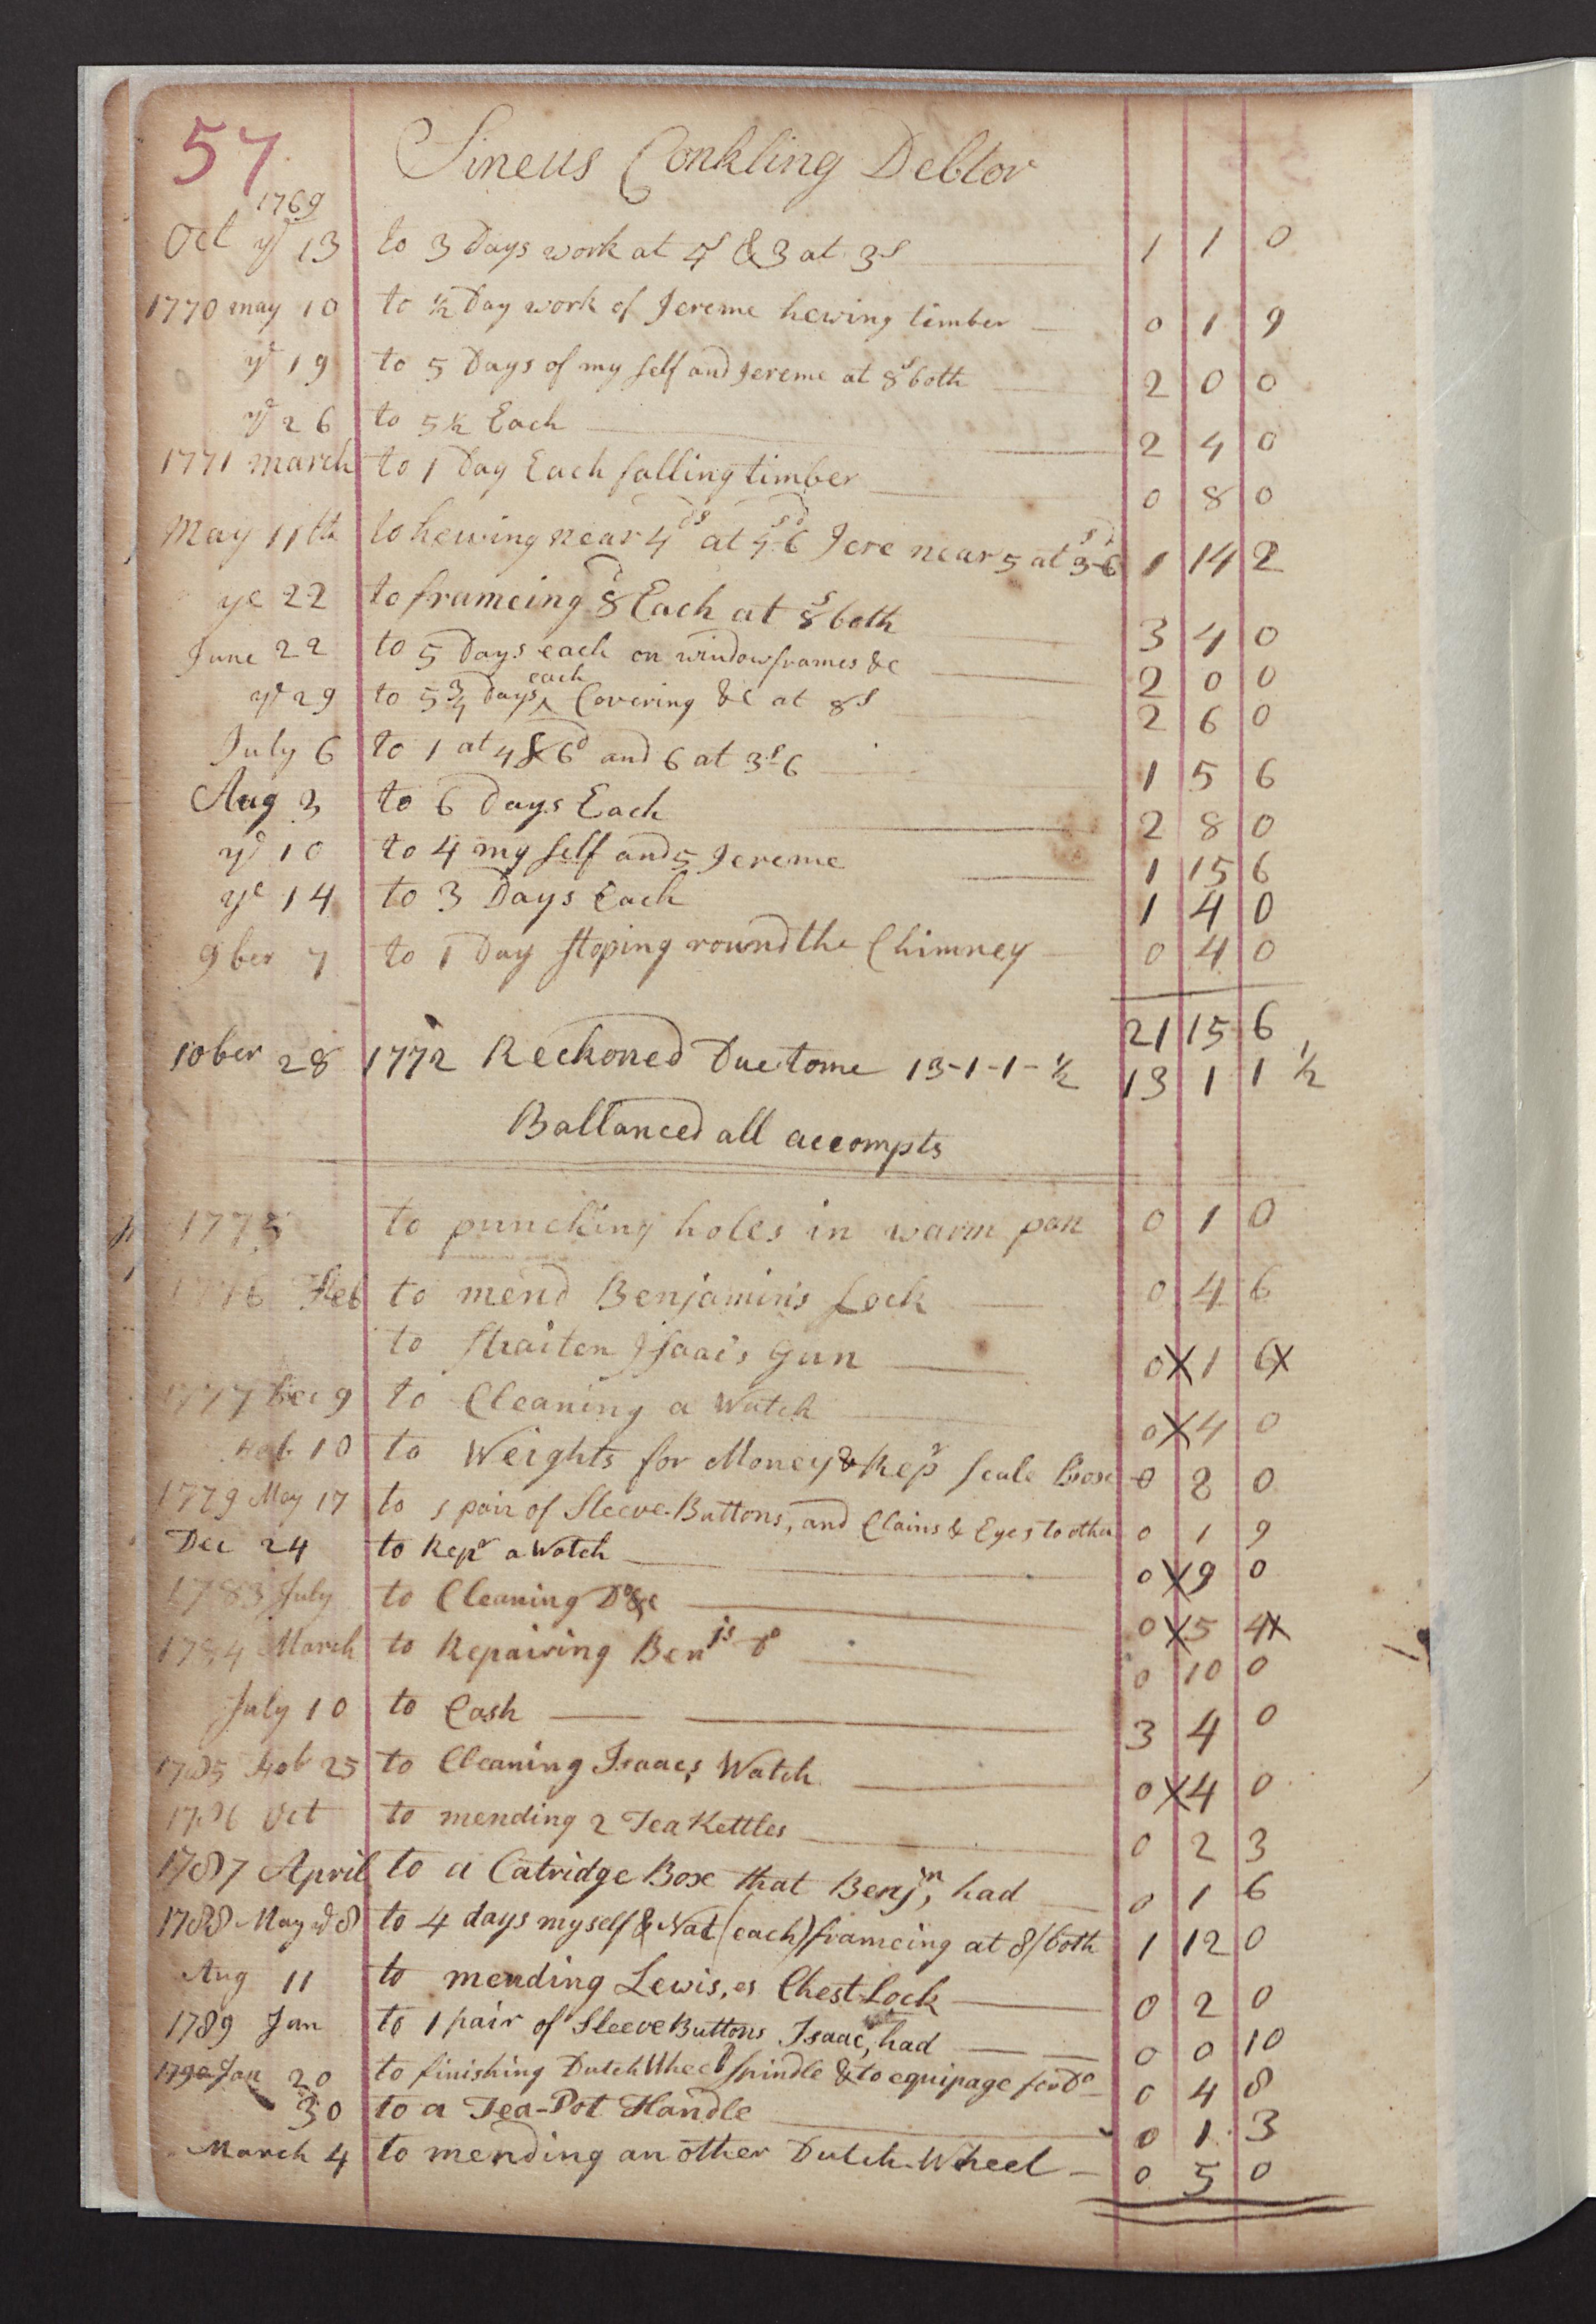 57
Sineus Conkling Debtor
1769
Oct ye 13 to 3 Days work at 4s & 3 at 3s 1 1 0
1770 may 10 to ½ Day work of Jereme hewing timber 0 1 9
ye 19 to 5 Days of my self and Jereme at 8s both 2 0 0
ye 26 to 5½ Each 2 4 0
1771 march to 1 Day Each falling timber 0 8 0
May 11th to hewing near 4ds at 4s 6d Jere near 5 at 3s-6d 1 14 2
ye 22 to frameing 8d Each at 8s both 3 4 0
June 22 to 5 Days each on windowframes &c 2 0 0
ye 29 to 5¾ Days each Covering &c at 8s 2 6 0
July 6 to 1 at 4s 6d and 6 at 3s-6 1 5 6
Aug 3 to 6 Days Each 2 8 0
ye 10 to 4 my self and 5 Jereme 1 15 6
ye 14 to 3 Days Each 1 4 0
9ber 7 to 1 Day stoping round the Chimney 0 4 0
21 15 6
10ber 28 1772 Reckoned Due tome 13-1-1-½ 13 1 1 ½
Ballanced all accompts
1775 to punching holes in warm pan 0 1 0
1776 Feb to mend Benjamin's Lock 0 4 6
to Straiten Isaac's Gun 0 X 1 6 X
1777 Dec 9 to Cleaning a Watch 0 X 4 0
Feb 10 to Weights for Money & Repr Scale Box 0 8 0
1779 May 17 to 1 pair of Sleeve-Buttons, and Chains & Eyes to other 0 1 9
Dec 24 to Repr a Watch 0 X 9 0
1783 July to Cleaning Do &c 0 X 5 4 X
1784 March to Repairing Benjs do 0 10 0
July 10 to Cash 3 4 0
1785 Feb 25 to Cleaning Isaacs Watch 0 X 4 0
1786 Oct to mending 2 Tea Kettles 0 2 3
1787 April to a Catridge Box that Benjn, had 0 1 6
1788 May ye 8 to 4 days myself & Nat (each) frameing at 8/ both 1 12 0
Aug 11 to mending Lewis,es Chest-Lock 0 2 0
1789 Jan to 1 pair of Sleeve Buttons Isaac, had 0 0 10
1790 Jan 20 to finishing Dutch Wheel Spindle & to equipage for Do 0 4 8
30 to a Tea-Pot Handle 0 1 3
March 4 to mending an other Dutch-Wheel 0 5 0